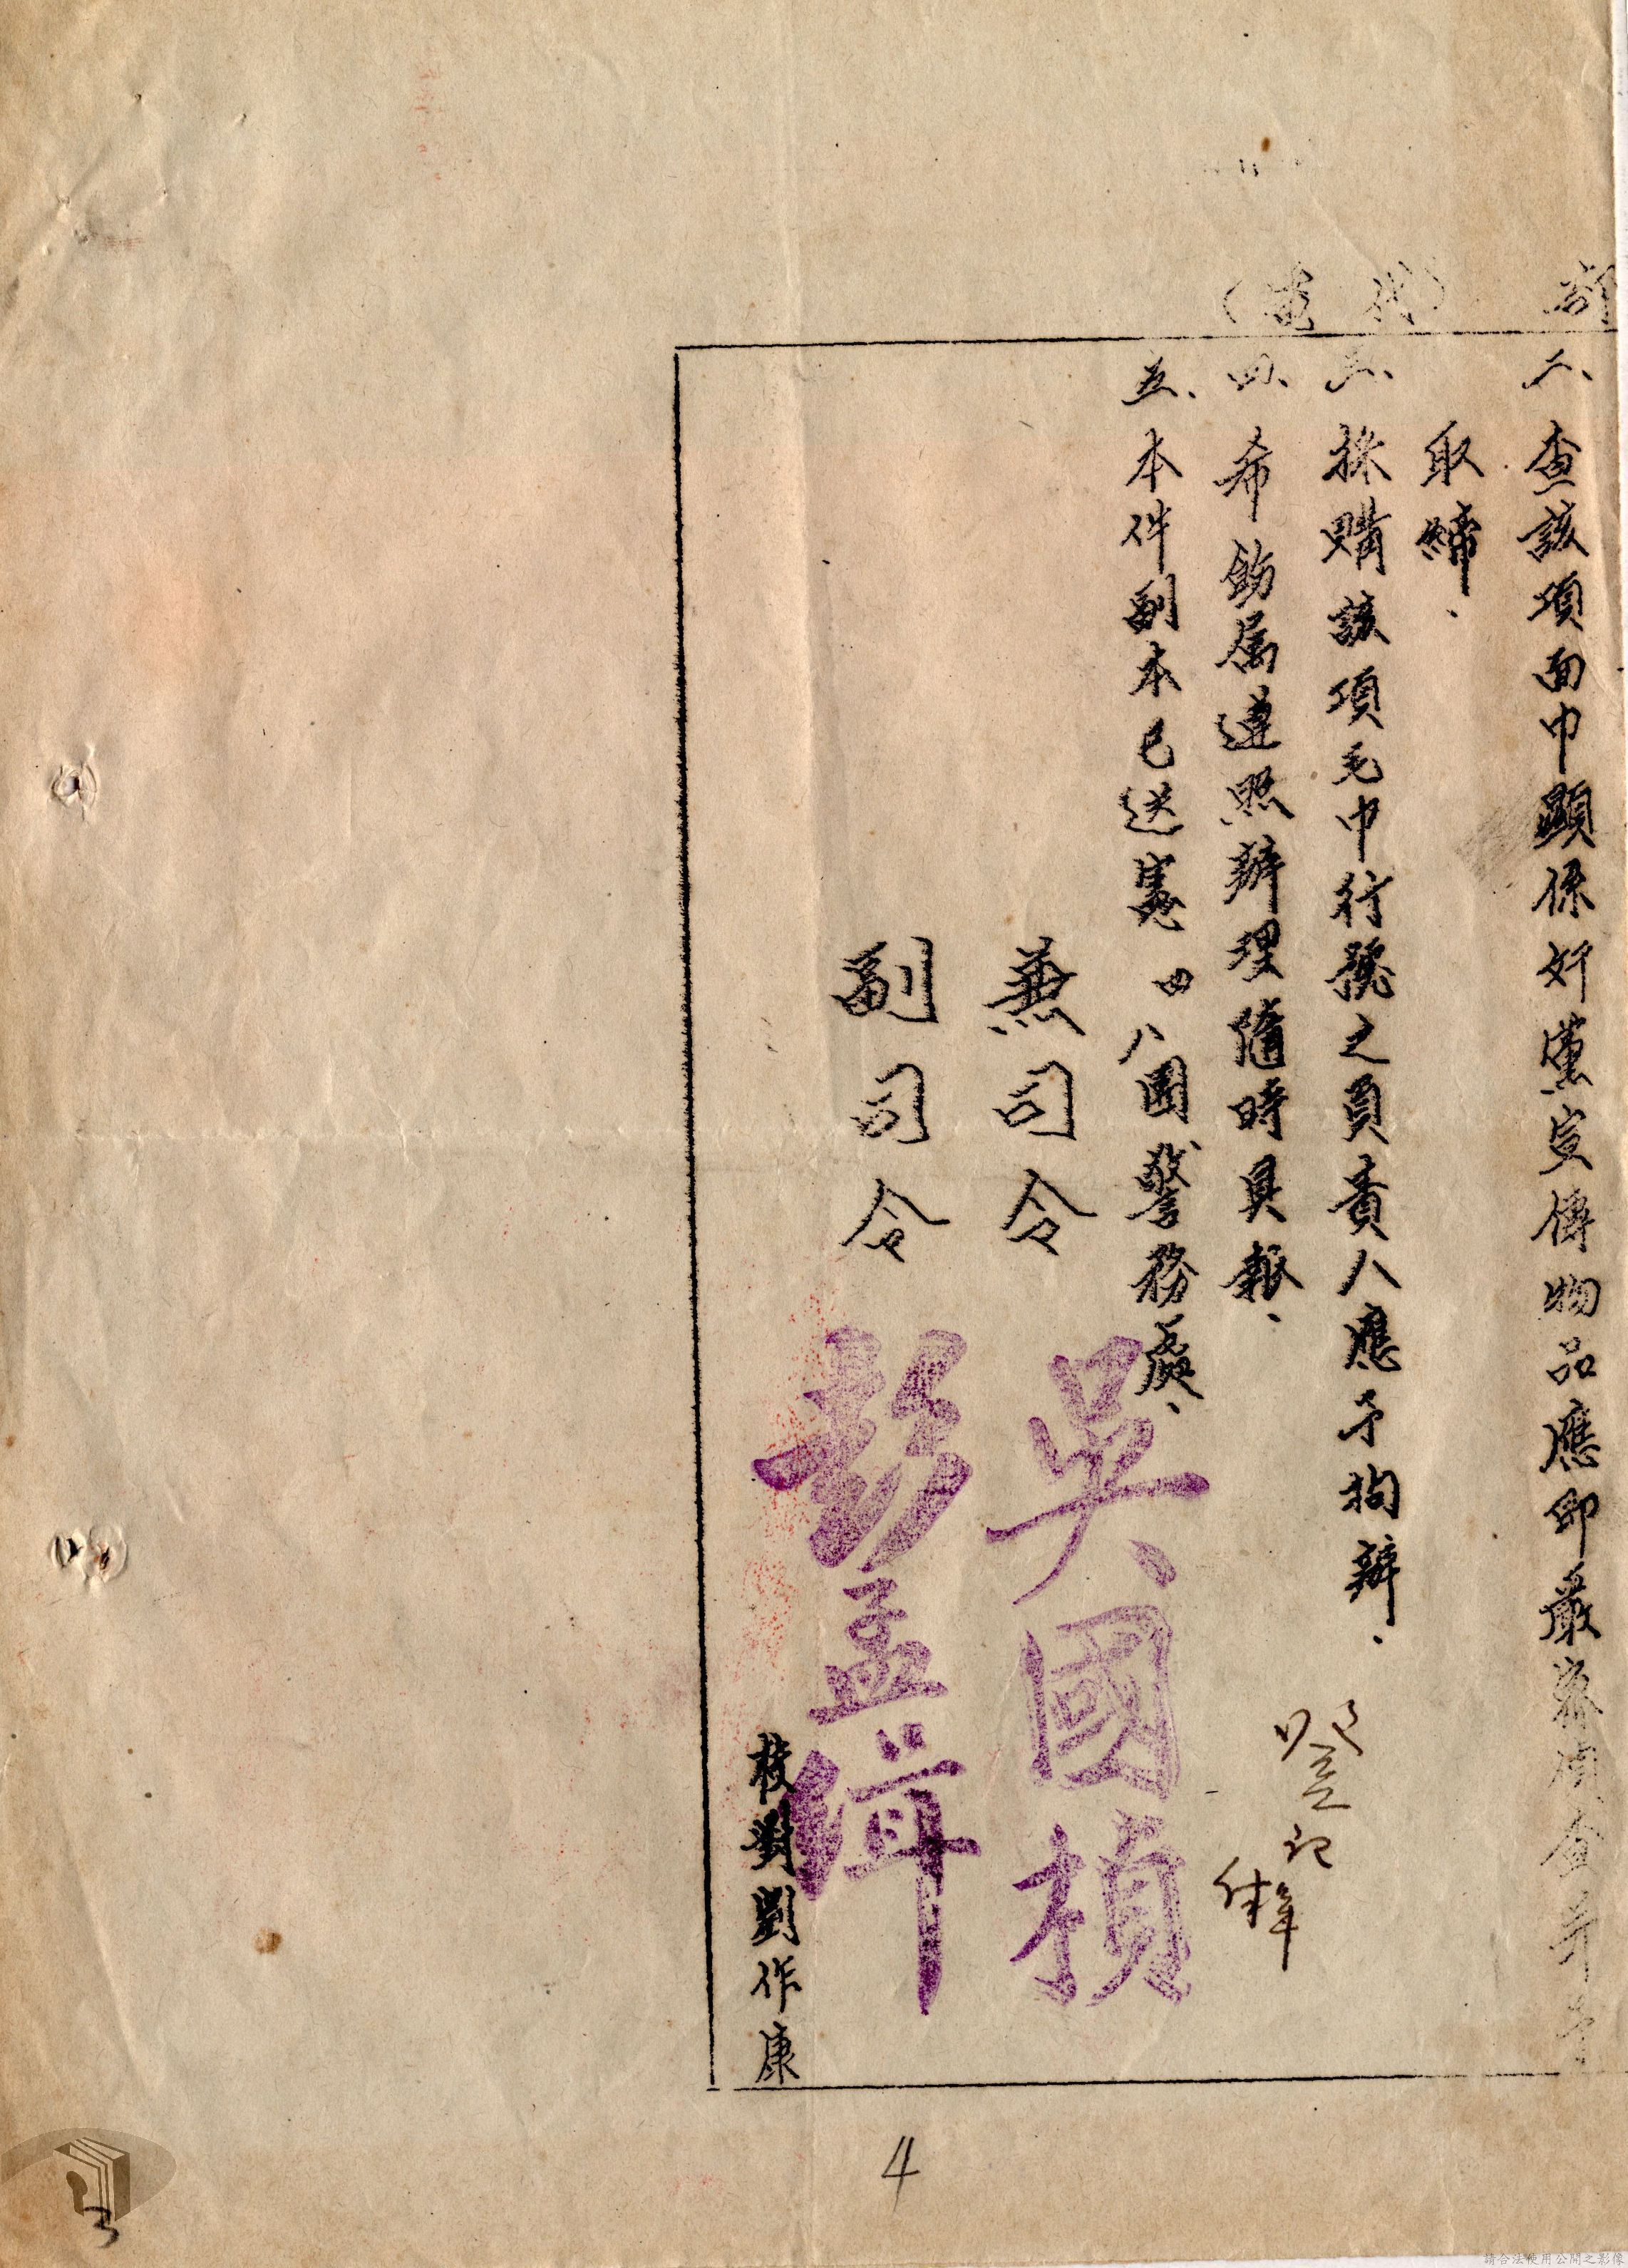 部
(代電)
二、查該項面巾顯係奸黨宣傳物品應即嚴密調查并予
取締、
三、採購該項毛巾行號之負責人應予拘辦、
四、希飭属遵照辦理隨時具報、
五、本件副本已送憲四八團警務處、
兼司令 吳國楨
副司令 彭孟緝
校對劉作康
登記
4
3
請合法使用公開之影像